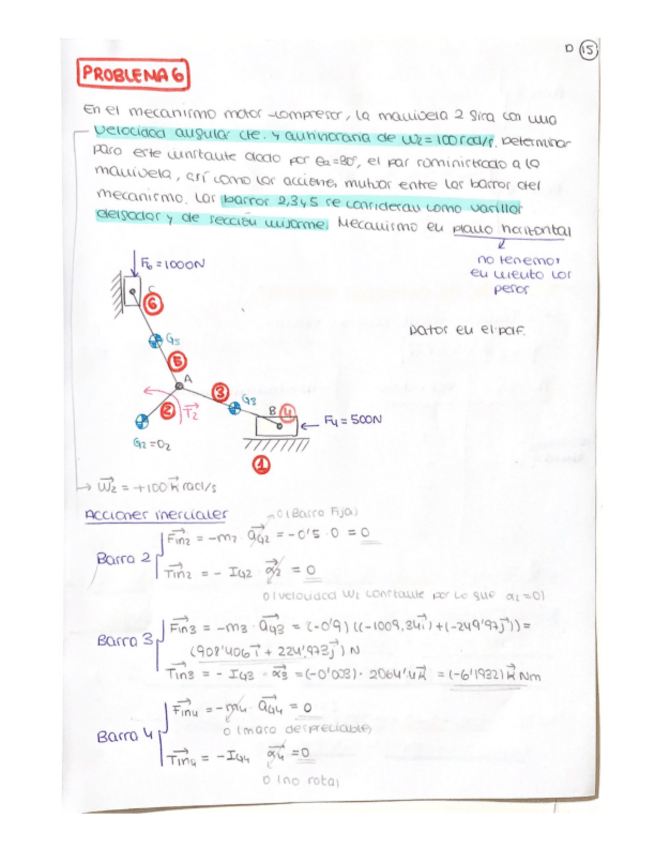 D 15
PROBLEMA 6
En el mecanismo motor-compresor, la manivela 2 gira con una
velocidad angular cte. y antihoraria de ω2 = 100 rad/s. Determinar
para este instante dado por θ2 = 30º, el par suministrado a la
manivela, así como las acciones mutuas entre las barras del
mecanismo. Las barras 2,3 y 5 se consideran como varillas
delgadas y de sección uniforme. Mecanismo en plano horizontal
no tenemos
en cuenta los
pesos
F6 = 1000N
C
6
G5
5
Datos en el pdf.
A
3
G3
2
T2
B
4
F4 = 500N
G2 = O2
1
ω2 = +100 k rad/s
Acciones inerciales
0 (Barra Fija)
Barra 2
Fin2 = -m2 · aG2 = -0'5 · 0 = 0
Tin2 = - IG2 · α2 = 0
0 (velocidad ω2 constante por lo que α2 = 0)
Barra 3
Fin3 = -m3 · aG3 = (-0'9) ((-1009,34i) + (-249'97j)) =
(908'406 i + 224'973 j) N
Tin3 = - IG3 · α3 = (-0'003) · 2064'4 k = (-6'1932) k Nm
Barra 4
Fin4 = -m4 · aG4 = 0
0 (masa despreciable)
Tin4 = - IG4 α4 = 0
0 (no rota)